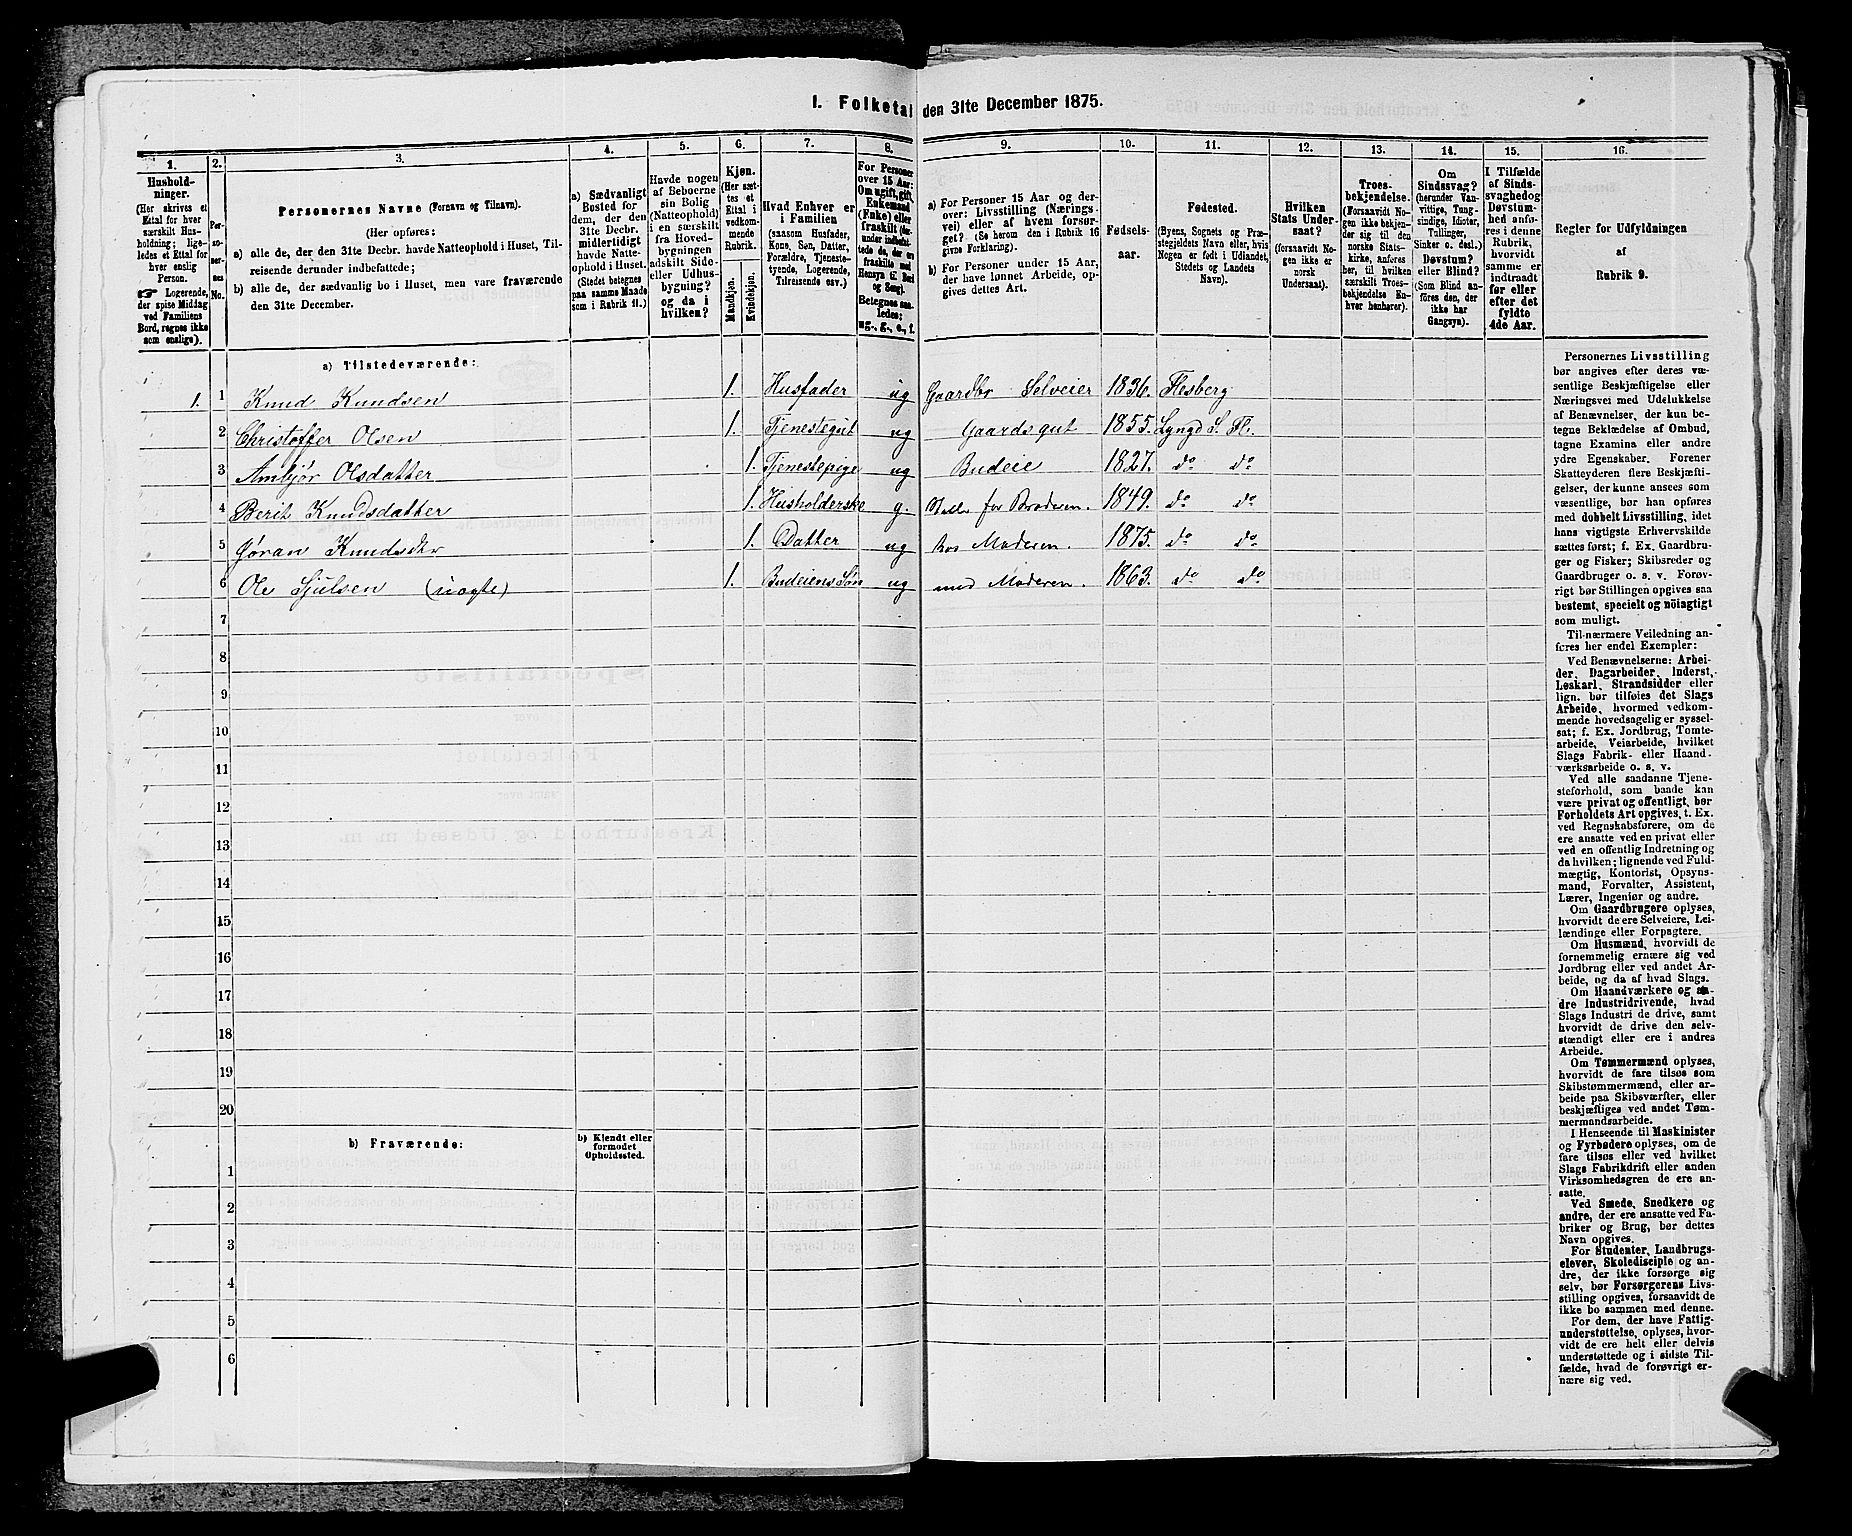 1. Folketal den 31te December 1875.
1.
Hushold-
ninger.
(Her skrives et
Ettal for hver
særskilt Hus-
holdning; lige-
ledes et Ettal for
hver enslig
Person.
☞ Logerende,
der spise Middag
ved Familiens
Bord, regnes ikke
som enslige).
2.
Per-
so-
ner-
nes
No.
3.
Personernes Navne (Fornavn og Tilnavn).
(Her opføres:
a) alle de, der den 31te Decbr. havde Natteophold i Huset, Til-
reisende derunder indbefattede;
b) alle de, der sædvanlig bo i Huset, men vare fraværende
den 31te December.
4.
a) Sædvanligt
Bosted for
dem, der den
31te Decbr.
midlertidigt
havde Natte-
ophold i Huset.
(Stedet betegnes
paa samme Maade
som i Rubrik 11.)
5.
Havde nogen
af Beboerne
sin Bolig
(Natteophold)
i en særskilt
fra Hoved-
bygningen
adskilt Side-
eller Udhus-
bygning?
og da i
hvilken?
6.
Kjøn.
(Her sæt-
tes et
Ettal i
vedkom-
mende
Rubrik.
Mandkjøn.
Kvindekjøn.
7.
Hvad Enhver er
i Familien
(saasom Husfader,
Kone, Søn, Datter,
Forældre, Tjeneste-
tyende, Logerende,
Tilreisende osv.)
8.
For Personer
over 15 Aar:
Om ugift, gift,
Enkemand
(Enke) eller
fraskilt (her-
under indbefat-
tede de, der ere
fraskilte med
Hensyn til Bord
og Seng).
Betegnes saa-
ledes:
ug-, g-, e-, f.
9.
a) For Personer 15 Aar og der-
over: Livsstilling (Nærings-
vei) eller af hvem forsør-
get? (Se herom den i Rubrik 16
givne Forklaring).
b) For Personer under 15 Aar,
der have lønnet Arbeide, op-
gives dettes Art.
10.
Fødsels-
aar.
11.
Fødested.
(Byens, Sognets og Præ-
stegjeldets Navn eller, hvis
Nogen er født i Udlandet,
Stedets og Landets
Navn).
12.
Hvilken
Stats Under-
saat?
(forsaavidt No-
gen ikke er
norsk
Undersaat).
13.
Troes-
bekjendelse.
(Forsaavidt No-
gen ikke bekjen-
der sig til den
norske Stats-
kirke, anføres
her, til hvilken
særskilt Troes-
bekjendelse En-
hver henhører).
14.
Om
Sindssvag?
(herunder Van-
vittige, Tung-
sindige, Idioter,
Tullinger,
Sinker o. desl.)
Døvstum?
eller Blind?
(Som Blind an-
føres den, der
ikke har
Gangsyn).
15.
I Tilfælde
af Sinds-
svaghed og
Døvstum-
hed anfø-
res i denne
Rubrik,
hvorvidt
samme er
indtraadt
før eller
efter det
fyldte
4de Aar.
16.
Regler for Udfyldningen
af
Rubrik 9.
a) Tilstedeværende:
1. 1 Knud Kundsen 1. Husfader ug Gaardbr Selveier 1836. Flesberg
2 Christoffer Olsen 1. Tjenestegut ug Gaardsgut 1855. Lyngd S. Fl.
3 Ambjør Olsdatter 1. Tjenestepige ug Budeie 1827. do do
4 Berit Knudsdatter 1. Husholderske g. Stell for Broderen. 1849. do do
5 Jøran Knudsdtr 1. Datter ug hos Moderen. 1875. do do
6 Ole Sjulsen (uægte) 1. Budeiens Søn ug med Moderen. 1863. do do
7
8
9
10
11
12
13
14
15
16
17
18
19
20
b) Fraværende:
b) Kjendt eller
formodet
Opholdssted.
1
2
3
4
5
6
Personernes Livsstilling
bør angives efter deres væ-
sentlige Beskjæftigelse eller
Næringsvei med Udelukkelse
af Benævnelser, der kun be-
tegne Beklædelse af Ombud,
tagne Examina eller andre
ydre Egenskaber. Forener
Skatteyderen flere Beskjæfti-
gelser, der kunne ansees som
væsentlige, bør han opføres
med dobbelt Livsstilling, idet
hans vigtigste Erhvervskilde
sættes først; f. Ex. Gaardbru-
ger og Fisker; Skibsreder og
Gaardbruger o. s. v. Forøv-
rigt bør Stillingen opgives saa
bestemt, specielt og nöiagtigt
som muligt.
Til nærmere Veiledning an-
føres her endel Exempler:
Ved Benævnelserne: Arbei-
der, Dagarbeider, Inderst,
Løskarl, Strandsidder eller
lign. bør tilføies det Slags
Arbeide, hvormed vedkom-
mende hovedsagelig er syssel-
sat; f. Ex. Jordbrug, Tomte-
arbeide, Veiarbeide, hvilket
Slags Fabrik- eller Haand-
værksarbeide o. s. v.
Ved alle saadanne Tjene-
steforhold, som baade kan
være privat og offentligt, bør
Forholdets Art opgives, t. Ex.
ved Regnskabsførere, om de
ere ansatte ved en privat eller
ved en offentlig Indretning og
da hvilken; lignende ved Fuld-
mægtig, Kontorist, Opsyns-
mand, Forvalter, Assistent,
Lærer, Ingeniør og andre.
Om Gaardbrugere oplyses,
hvorvidt de ere Selveiere, Lei-
lændinge eller Forpagtere.
Om Husmænd, hvorvidt de
fornemmelig ernære sig ved
Jordbrug eller ved andet Ar-
beide, og da af hvad Slags.
Om Haandværkere og an-
dre Industridrivende, hvad
Slags Industri de drive, samt
hvorvidt de drive den selv-
stændigt eller ere i andres
Arbeide.
Om Tømmermænd oplyses,
hvorvidt de fare tilsøs som
Skibstømmermænd, eller ar-
beide paa Skibsværfter, eller
beskjæftiges ved andet Tøm-
mermandsarbeide.
I Henseende til Maskinister
og Fyrbødere oplyses, om de
fare tilsøs eller ved hvilket
Slags Fabrikdrift eller anden
Virksomhedsgren de ere an-
satte.
Ved Smede, Snedkere og
andre, der ere ansatte ved Fa-
briker og Brug, bør dettes
Navn opgives.
For Studenter, Landbrugs-
elever, Skoledisciple og an-
dre, der ikke forsørge sig
selv, bør Forsørgerens Livs-
stilling opgives, forsaavidt de
ikke bo sammen med denne.
For dem, der have Fattig-
understøttelse, oplyses, hvor-
vidt de ere helt eller delvis
understøttede og i sidste Til-
fælde, hvad de forøvrigt er-
nære sig ved.